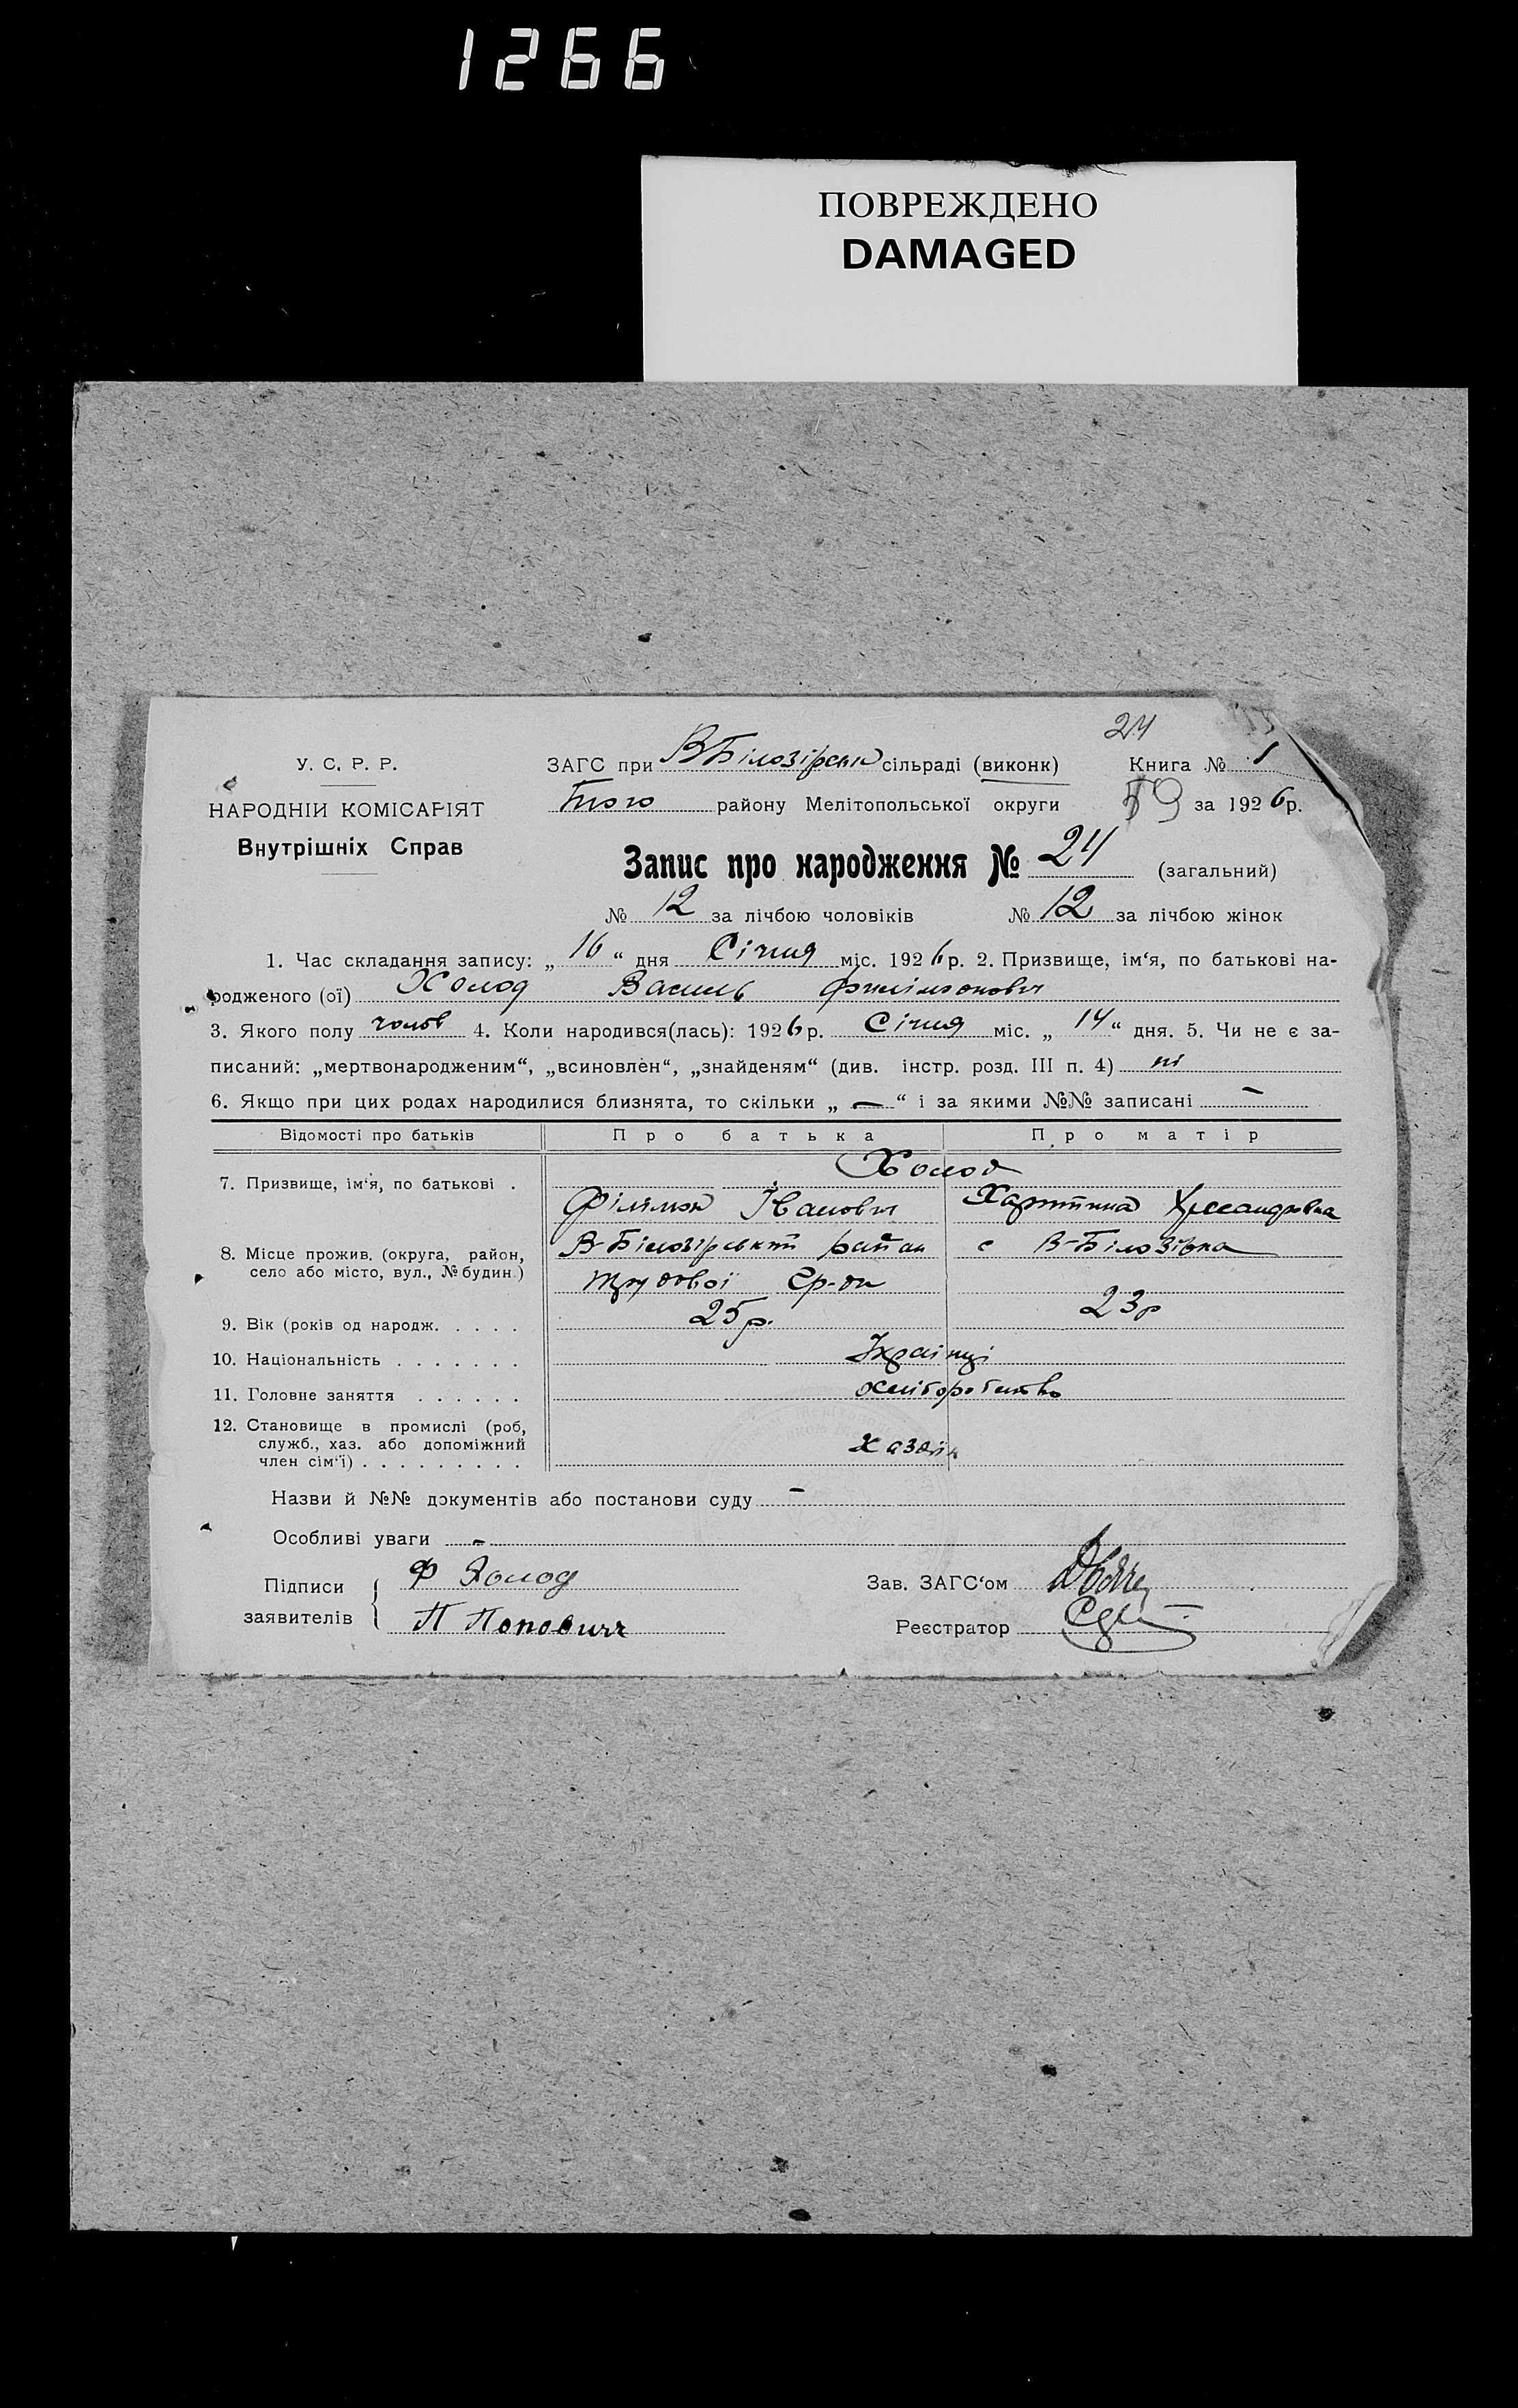 1266
ПОВРЕЖДЕНО
DAMAGED
24
У. С. Р. Р.
ЗАГС при В Білозірськ сільраді (виконк)
Книга № 1
НАРОДНІЙ КОМІСАРІЯТ
Того району Мелітопольської округи
59 за 1926р.
Внутрішніх Справ
Запис про народження № 24 (загальний)
№ 12 за лічбою чоловіків № 12 за лічбою жінок
1. Час складання запису: „ 16 “ дня Січня міс. 1926р. 2. Призвище, ім‘я, по батькові на-
родженого (ої) Холод Василь Филімонович
3. Якого полу чолов 4. Коли народився(лась): 1926р. Січня міс. „ 14 “ дня. 5. Чи не є за-
писаний: „мертвонародженим“, „всиновлен“, „знайденям“ (див. інстр. розд. III п. 4) ні
6. Якщо при цих родах народилися близнята, то скільки „ — “ і за якими №№ записані —
Відомості про батьків Про батька Про матір
Холод
7. Призвище, ім‘я, по батькові .
Філімон Іванович Харитина
8. Місце прожив. (округа, район,
село або місто, вул., № будин.)
В-Білозірський район с В-Білозірка
трудової
9. Вік (років од народж. . . . . 25р. 23р
10. Національність . . . . . . . Українці
11. Головне заняття . . . . . . хліборобство
12. Становище в промислі (роб,
служб., хаз. або допоміжний
член сім‘ї) . . . . . . . . . хазяїн
Назви й №№ документів або постанови суду —
Особливі уваги —
Підписи
заявителів
Ф Холод
П Попович
Зав. ЗАГС‘ом
Реєстратор